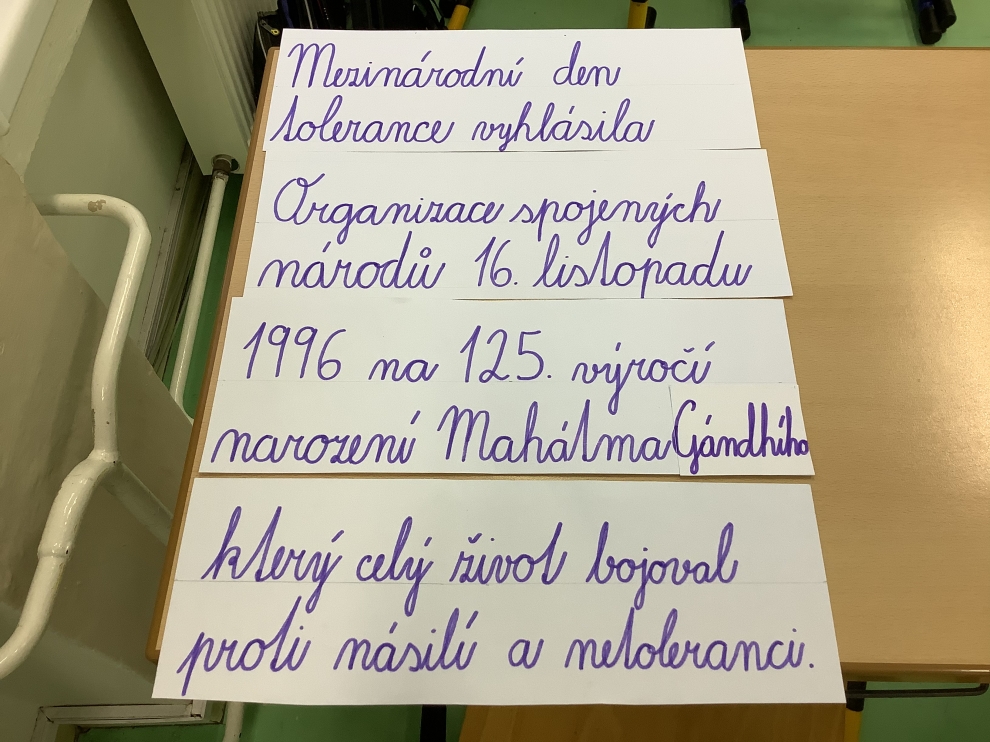 Mezinárodní den
tolerance vyhlásila
Organizace spojených
národů 16. listopadu
1996 na 125. výročí
narození Mahátma Gándhího
který celý život bojoval
proti násilí a netoleranci.